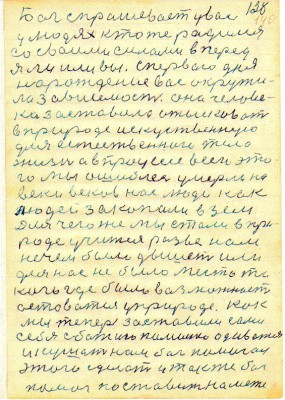 Бог спрашевает увас 128
у людях ктоте радился
со своими силами вперед
я или вы. с первого дня
нарождение вас окружи-
ла зависемость она челове-
ка заставила отысковат
в природе искуственую
для естественного тело
жизнь а впроцесе всего это-
го мы ошиблся умерли на
веки веков нас люди как
людей закопали в земл
для чегоже мы стали впри-
роде учится разве нам
нечем было дышет или
для нас не было место та
кого где было возможност
астоватся уприроде. как
мы тепер заставили сами
себя
одеватся
и кушат нам бог помогал
этого сделат и также бог
помог поставит на